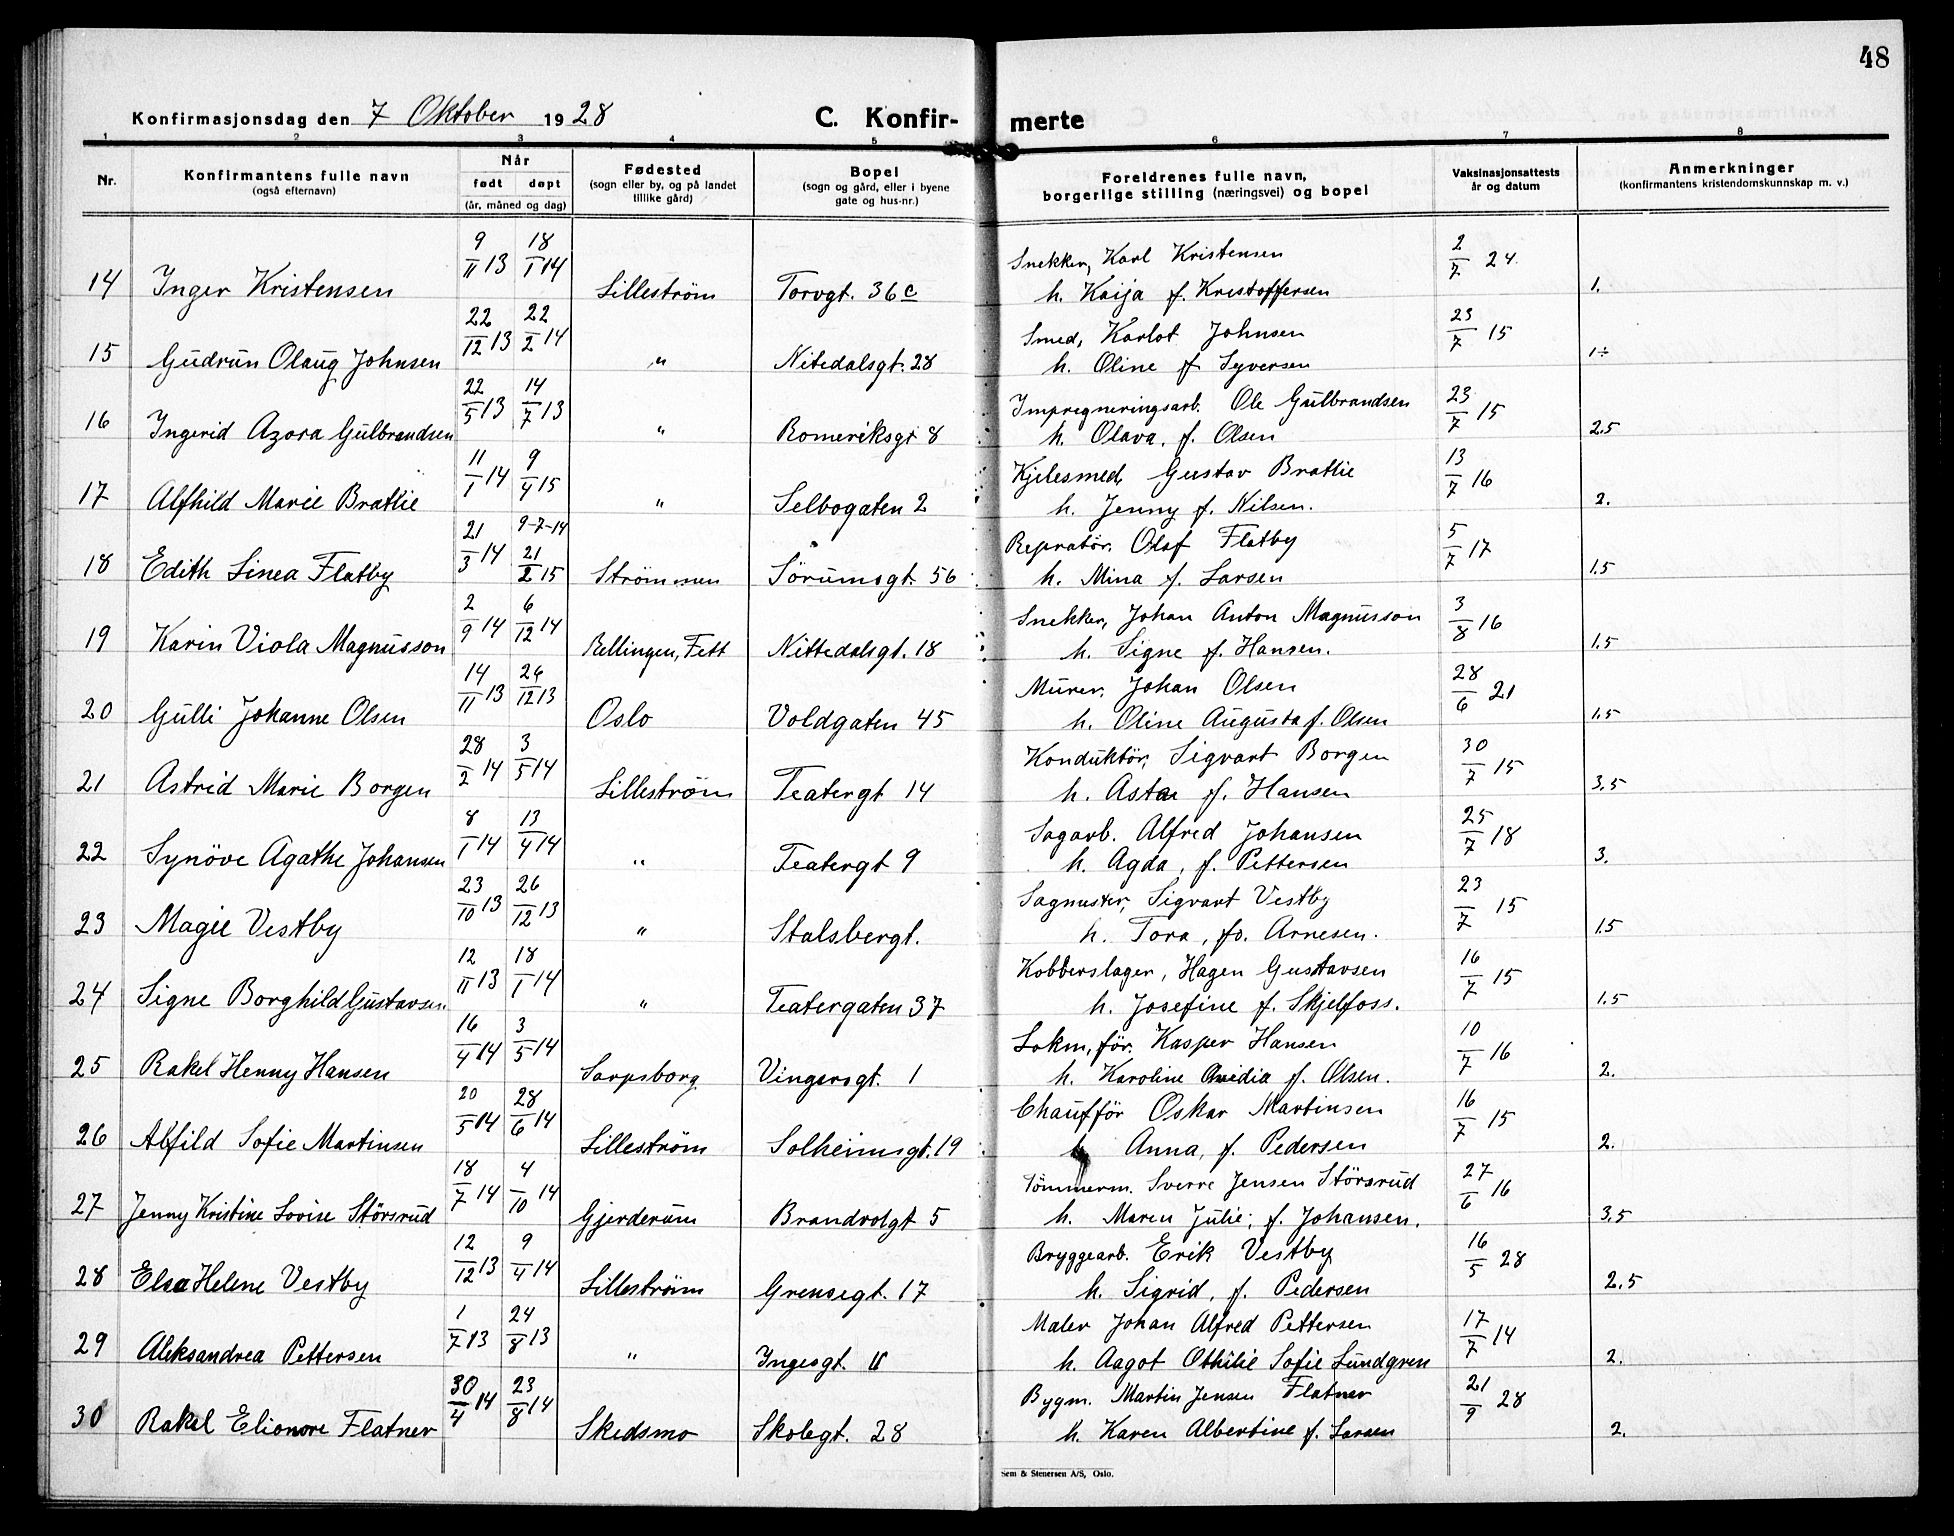 48
Konfirmasjonsdag den 7 Oktober 1928 C. Konfir- merte
1 2 3 4 5 6 7 8
Nr. Konfirmantens fulle navn (også efternavn) Når født døpt (år, måned og dag) Fødested (sogn eller by, og på landet tillike gård) Bopel (sogn og gård, eller i byene gate og hus-nr.) Foreldrenes fulle navn, borgerlige stilling (næringsvei) og bopel Vaksinasjonsattests år og datum Anmerkninger (konfirmantens kristendomskunnskap m. v.)
14 Inger Kristensen 9/11 13 18/1 14 Lilleström Torvgt. 36c Snekker, Karl Kristensen 2/7 24 1.
h. Kaija f. Kristoffersen
15 Gudrun Olaug Johnsen 22/12 13 22/2 14 " Nitedalsgt. 28 Smed, Karlot Johnsen 23/7 15 1÷
h. Oline f. Syversen
16 Ingerid Azora Gulbrandsen 22/5 13 14/7 13 " Romeriksgt 8 Impregneringsarb. Ole Gulbrandsen 23/7 15 2.5
h. Olava, f. Olsen
17 Alfhild Marie Bratlie 11/1 14 9/4 15 " Selbogaten 2 Kjelesmed, Gustav Bratlie 13/7 16 2.
h. Jenny f. Nilsen.
18 Edith Linea Flatby 21/3 14 9-7-14 21/2 15 Strömmen Sörumsgt. 56 Repratör. Olaf Flatby 5/7 17 1.5
h. Mina f. Larsen
19 Karin Viola Magnusson 2/9 14 6/12 14 Rellingen, Fett Nittedalsgt. 18 Snekker, Johan Anton Magnusson 3/8 16 1.5
h. Signe f. Hansen.
20 Gulli Johanne Olsen 14/11 13 26/12 13 Oslo Voldgaten 45 Murer, Johan Olsen 28/6 21 1.5
h. Oline Augusta f. Olsen
21 Astrid Marie Borgen 28/2 14 3/5 14 Lilleström Teatergt 14 Konduktör, Sigvart Borgen 30/7 15 3.5
h. Asta f. Hansen
22 Synöve Agathe Johansen 8/1 14 13/4 14 " Teatergt 9 Sagarb. Alfred Johansen 25/7 18 3.
h. Agda, f. Pettersen
23 Magie Vestby 23/10 13 26/12 13 " Stalsbergt. Sagmester, Sigvart Vestby 23/7 15 1.5
h. Tora, fo. Arnesen.
24 Signe Borghild Gustavsen 12/11 13 18/1 14 " Teatergaten 37 Kobberslager, Hagen Gustavsen 16/7 15 1.5
h. Josefine f. Skjelfoss.
25 Rakel Henny Hansen 16/4 14 3/5 14 Sarpsborg Vingersgt. 1 Lokm,för. Kasper Hansen 10/7 16 2.
h. Karoline Ovidia f. Olsen.
26 Alfild Sofie Martinsen 20/5 14 28/6 14 Lilleström Solheimsgt. 19 Chauffför Oskar Martinsen 16/7 15 2.
h Anna, f. Pedersen
27 Jenny Kristine Lovise Störsrud 18/7 14 4/10 14 Gjerderum Brandvolgt 5 Tömmerm. Sverre Jensen Störsrud 27/6 16 3.5
h. Maren Julie, f. Johansen.
28 Elsa Helene Vestby 12/12 13 9/4 14 Lilleström Grensegt. 17 Bryggearb. Erik Vestby 16/5 28 2.5
h. Sigrid, f. Pedersen
29 Aleksandrea Pettersen 1/7 13 24/8 13 " Ingesgt. Maler Johan Alfred Pettersen 17/7 14 2.
h. Aagot Othilie Sofie Lundgren
30 Rakel Elionore Flatner 30/4 14 23/8 14 Skedsmo Skolegt. 28 Bygm. Martin Jensen Flatner 21/9 28 2.
h. Karen Albertine f. Larsen
Sem & Stenersen A/S, Oslo.